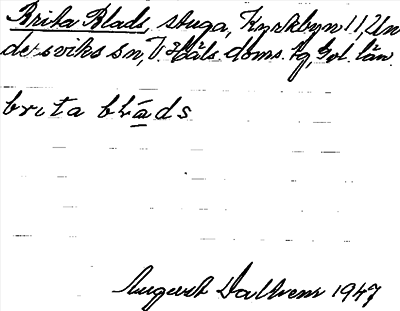 Brita Blads, stuga, Kyrkbyn 11, Un
dersviks sn, V. Häls. doms. fg, Gvl. län.
brita blåds
August Dalhem 1947